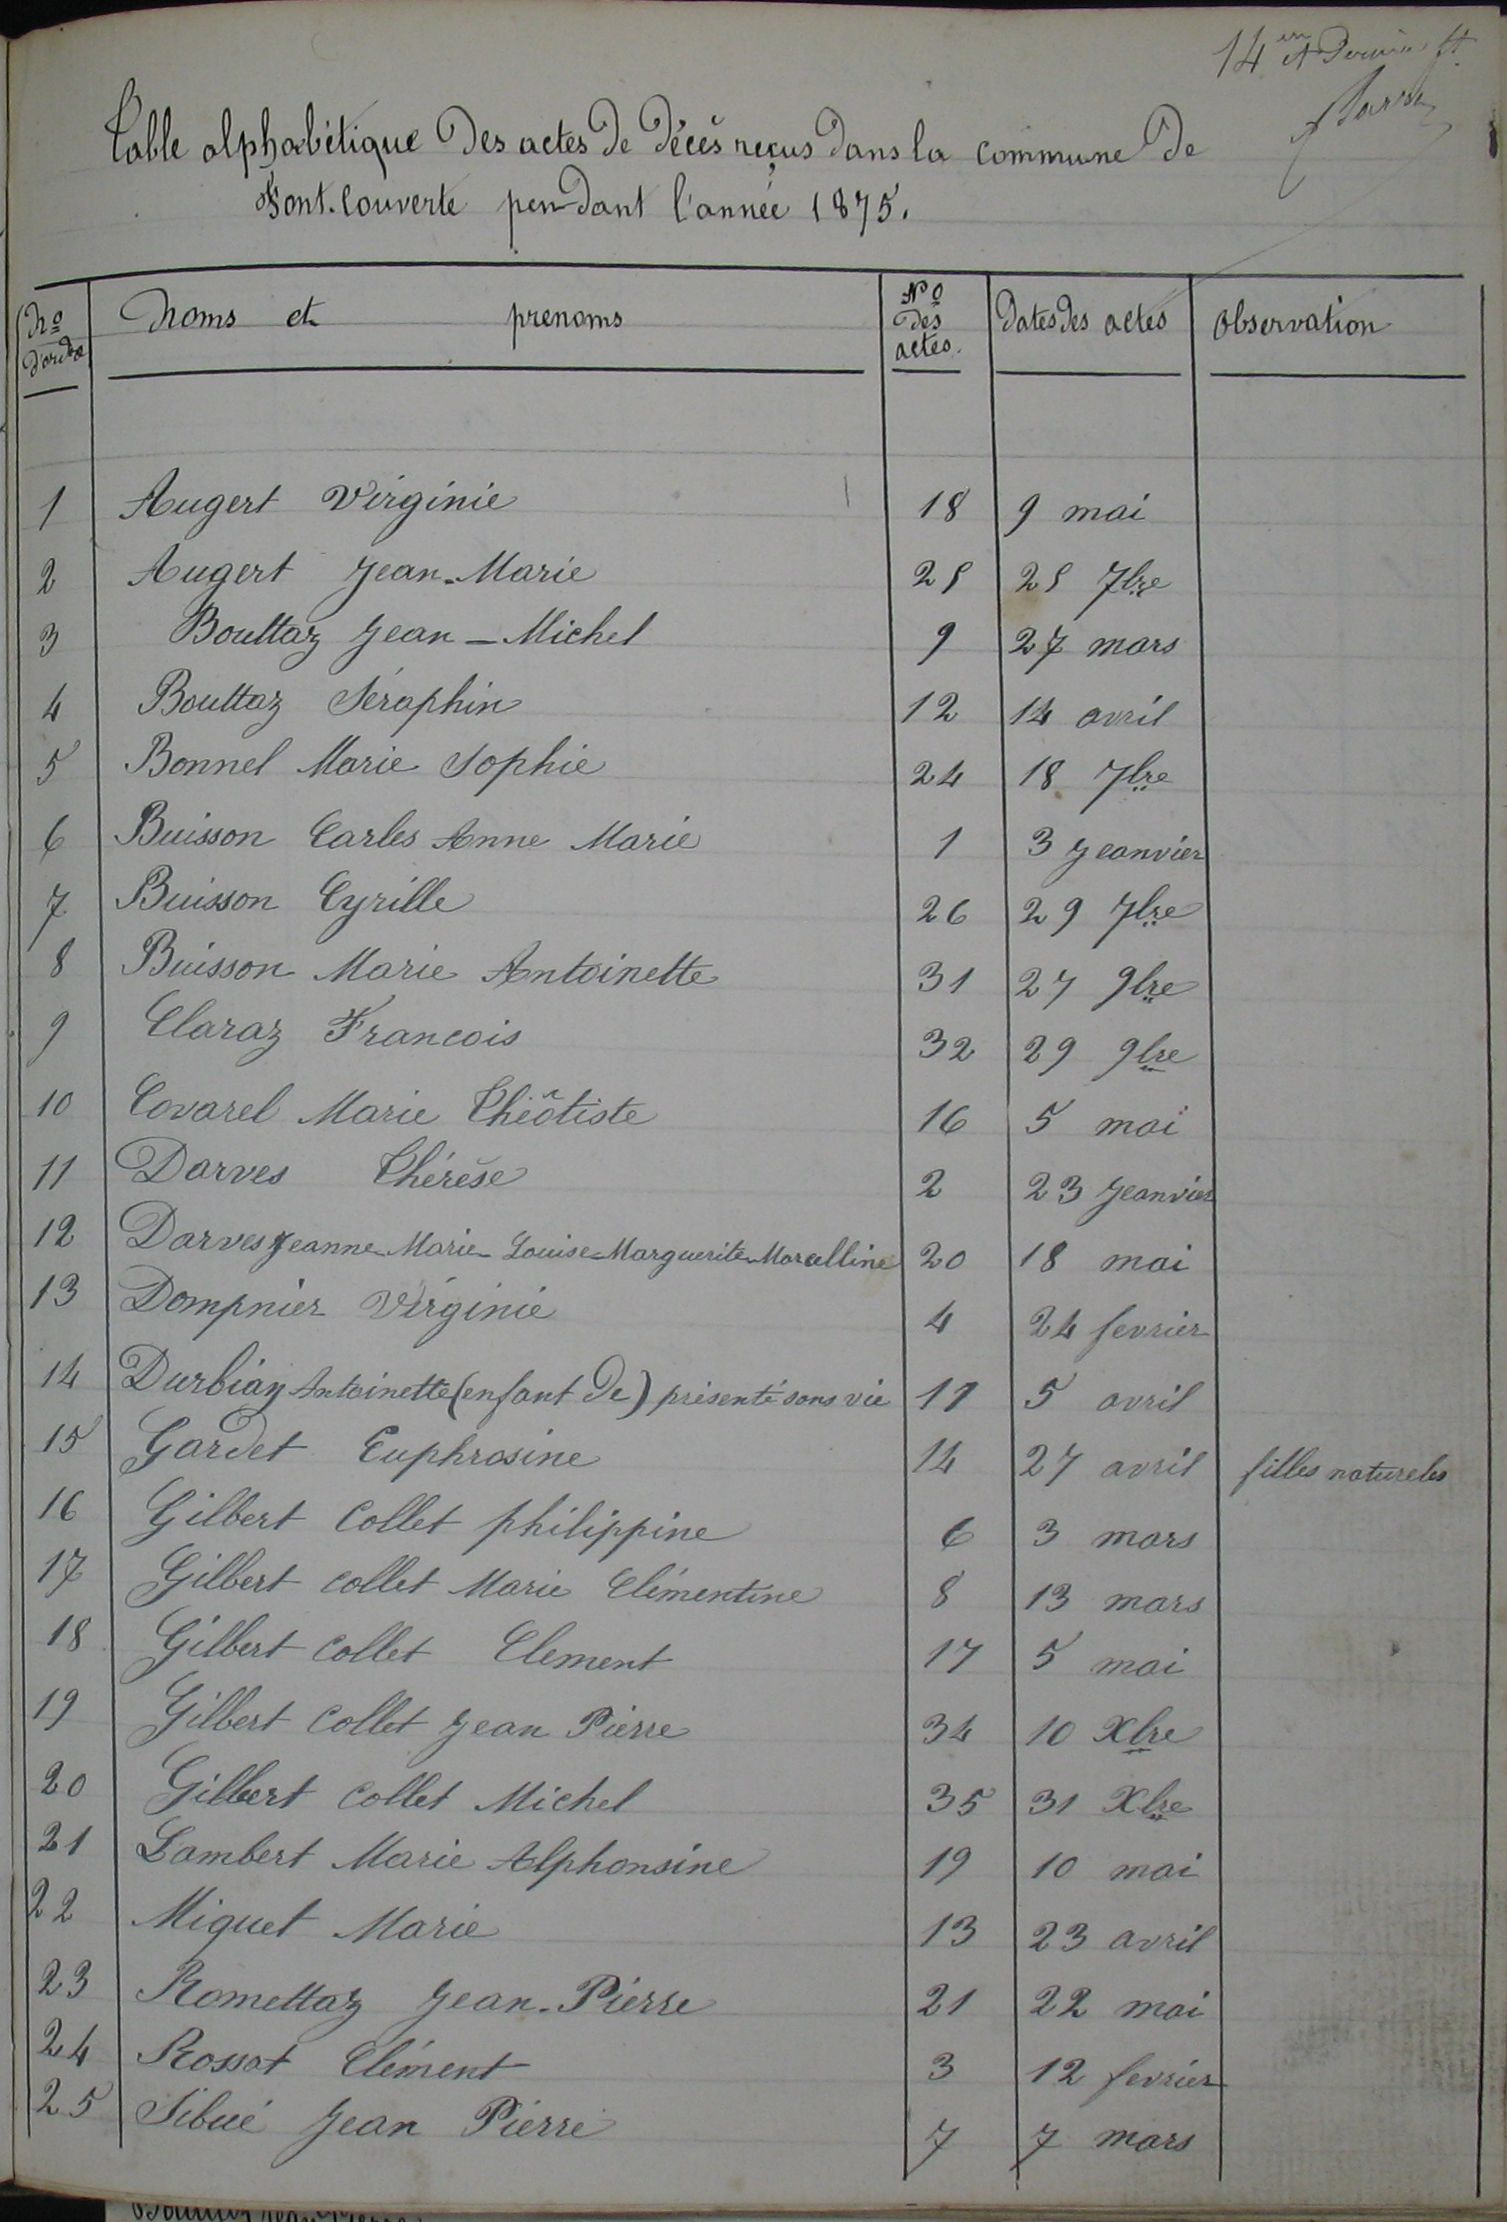 14 em et Dernier ft
Table alphabétique Des actes De Décès reçus Dans la commune De
Font-Couverte pendant l'année 1875.
No d'ordre Noms et prenoms No des actes. Dates des actes Observation
1 Augert Virginie 18 9 mai
2 Augert Jean-Marie 25 25 7bre
3 Bouttaz Jean-Michel 9 27 mars
4 Bouttaz Séraphin 12 14 avril
5 Bonnel Marie Sophie 24 18 7bre
6 Buisson Carles Anne Marie 1 3 Jeanvier
7 Buisson Cyrille 26 29 7bre
8 Buisson Marie Antoinette 31 27 9bre
9 Claraz Francois 32 29 9bre
10 Covarel Marie Théôtiste 16 5 mai
11 Darves Thérèse 2 23 Jeanvier
12 Darves Jeanne Marie Louise-Marguerite-Marcelline 20 18 mai
13 Dompnier Virginie 4 24 fevrier
14 Durbian Antoinette (enfant De) présenté sans vie 11 5 avril
15 Gardet Euphrosine 14 27 avril filles natureles
16 Gilbert Collet philippine 6 3 mars
17 Gilbert collet Marie Clémentine 8 13 mars
18 Gilbert Collet Clement 17 5 mai
19 Gilbert Collet Jean Pierre 34 10 Xbre
20 Gilbert Collet Michel 35 31 Xbre
21 Lambert Marie Alphonsine 19 10 mai
22 Miquet Marie 13 23 avril
23 Romettaz Jean-Pierre 21 22 mai
24 Rossat Clément 3 12 fevrier
25 Sibué Jean Pierre 7 7 mars